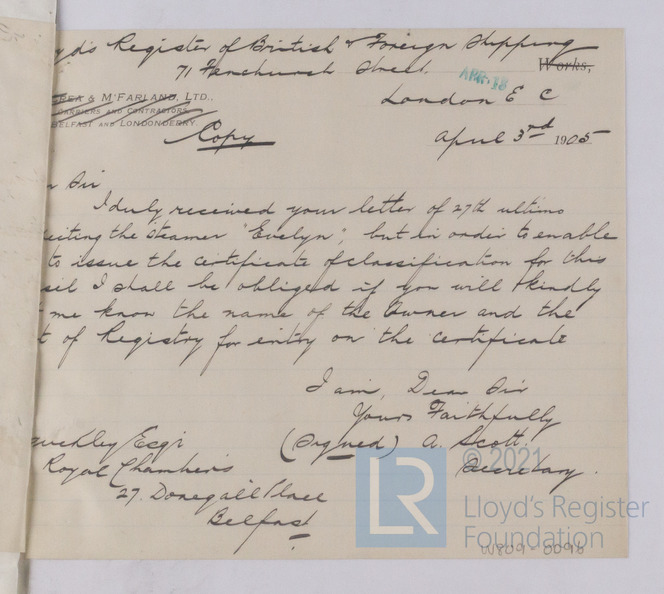 yd's Register of British & Foreign Shipping
71 Fenchurch Street.
Works,
APR. 18
London E C
& McFARLAND, LTD.,
CARRIERS AND CONTRACTORS,
BELFAST AND LONDONDERRY.
Copy
April 3rd 1905
Sir
I duly received your letter of 27th ultimo
the steamer "Evelyn", but in order to enable
to issue the certificate of classification for this
sel I shall be obliged if you will kindly
me know the name of the Owner and the
t of Registry for entry on the certificate
I am, Dear Sir
Yours Faithfully
(Signed) A. Scott.
Secretary.
Esqr
Royal Chambers
27. Donegall Place
Belfast
LR
© 2021
Lloyd's Register
Foundation
W809-0096